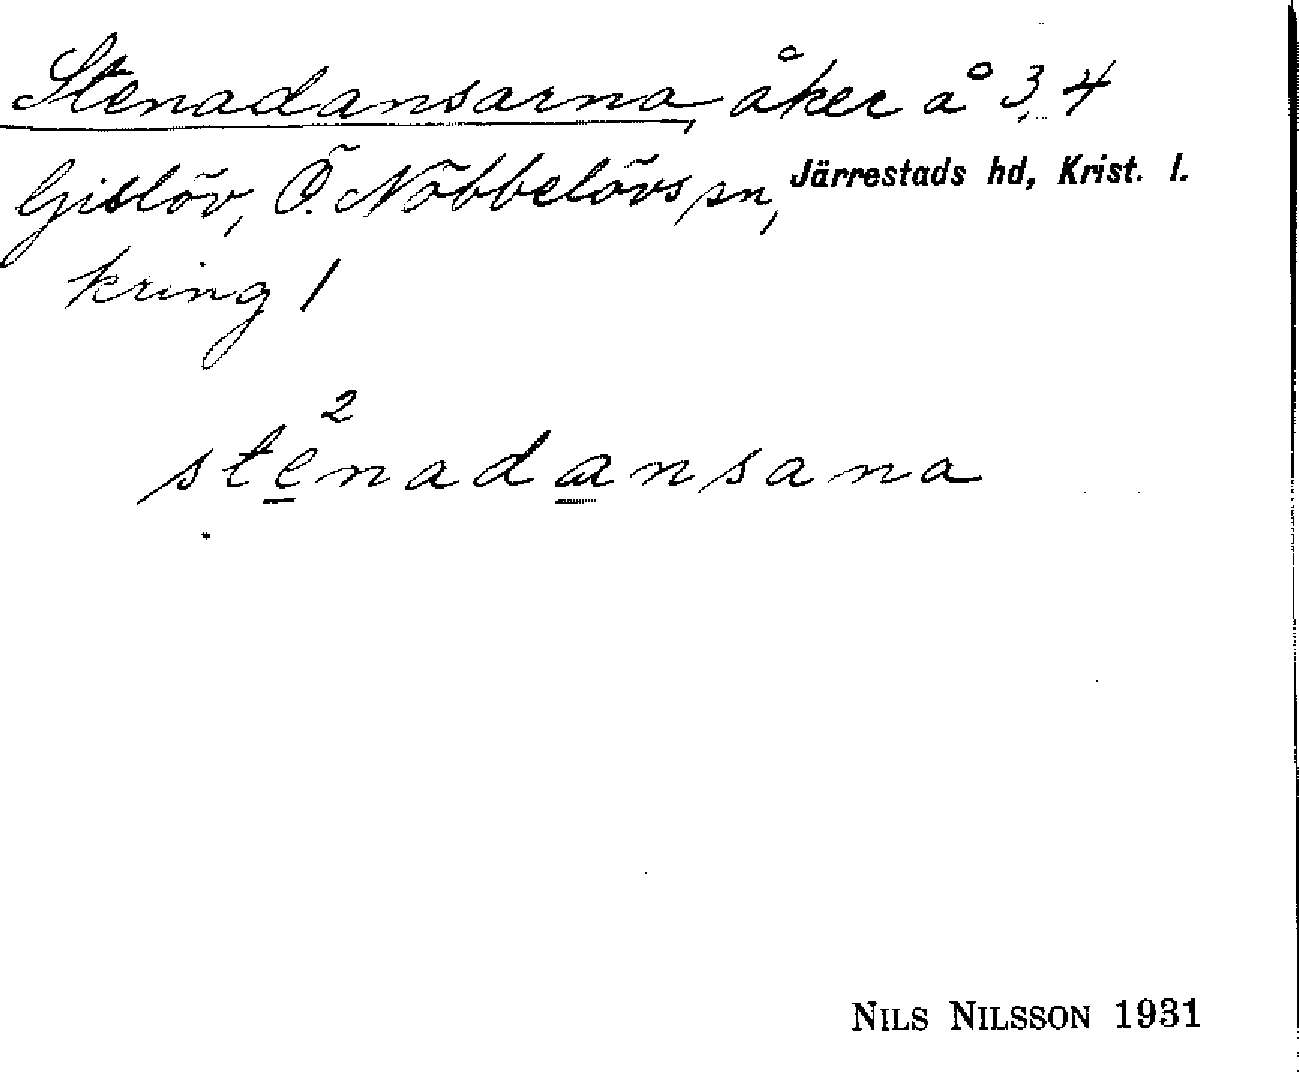 Stenadansarna, åker å 3, 4
Gislöv, Ö. Nöbbelövs sn, Järrestads hd, Krist. l.
kring 1
2
stenadansana
NILS NILSSON 1931